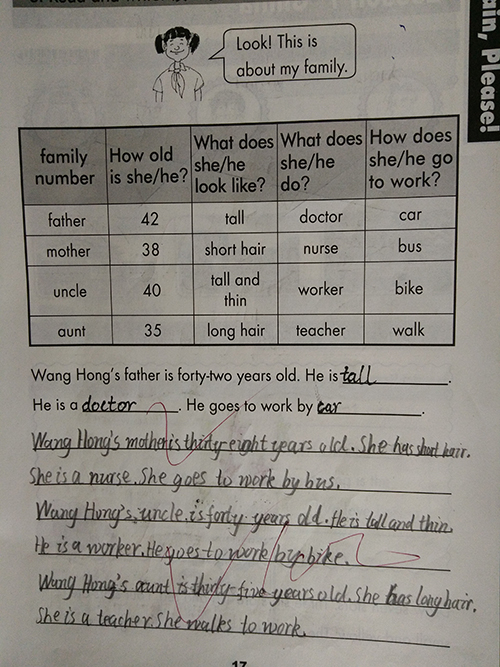 Look! This is
about my family.
ain, Please!
family number | How old is she/he? | What does she/he look like? | What does she/he do? | How does she/he go to work?
father | 42 | tall | doctor | car
mother | 38 | short hair | nurse | bus
uncle | 40 | tall and thin | worker | bike
aunt | 35 | long hair | teacher | walk
Wang Hong's father is forty-two years old. He is tall.
He is a doctor. He goes to work by car.
Wang Hong's mother is thirty-eight years old. She has short hair.
She is a nurse. She goes to work by bus.
Wang Hong's uncle is forty years old. He is tall and thin.
He is a worker. He goes to work by bike.
Wang Hong's aunt is thirty-five years old. She has long hair.
She is a teacher. She walks to work.
17